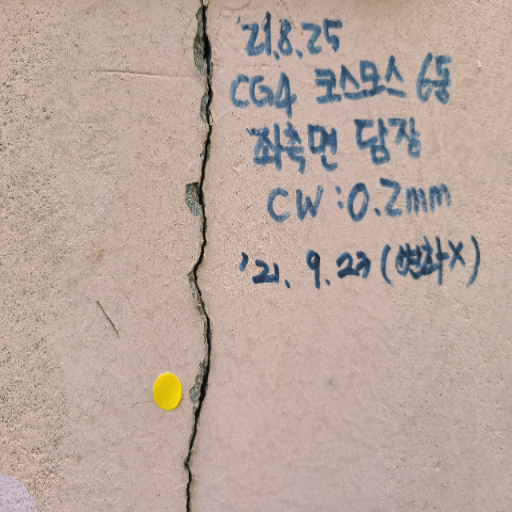 '21.8.25
CG4 코스모스 6동
좌측면 담장
CW : 0.2mm
'21. 9. 23 (변화X)